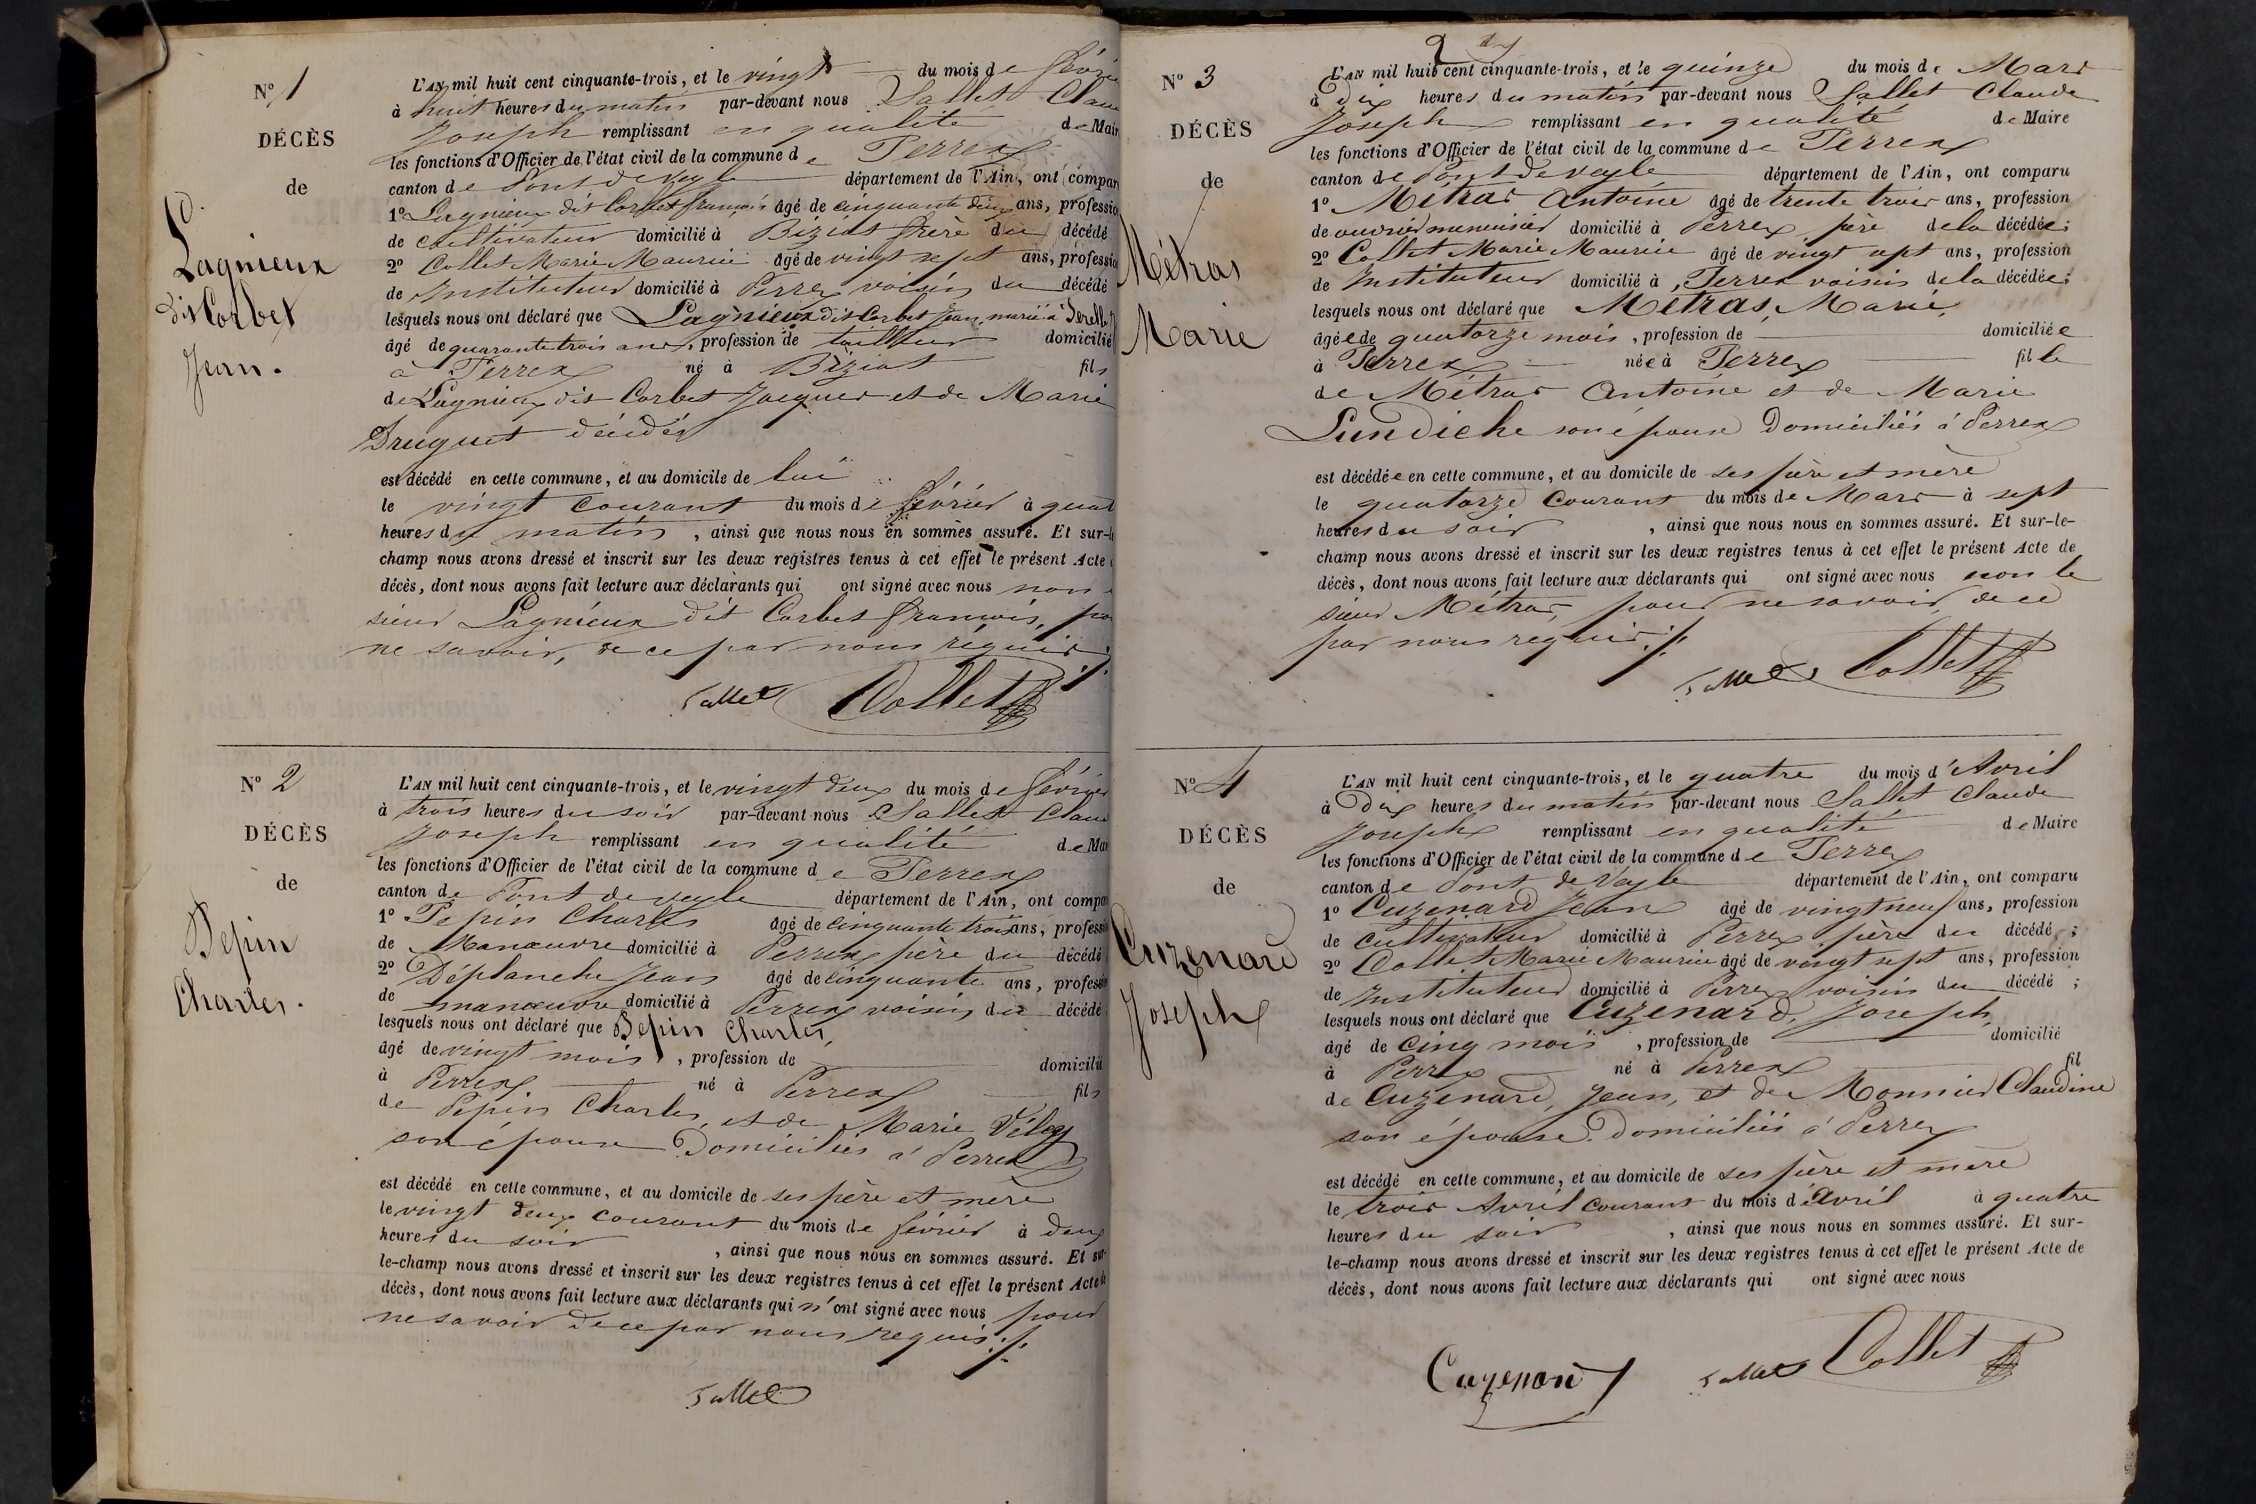 Nº 1
DÉCÈS
de
Lagnieux
dit Corbet
Jean.
L'AN mil huit cent cinquante-trois, et le vingt du mois de février
à huit heures du matin par-devant nous Sallet Clau
Joseph remplissant en qualité de Mair
les fonctions d'Officier de l'état civil de la commune de Perrex
canton de Pont de Veyle département de l'Ain, ont compar
1º Lagnieux dit Corbet françois âgé de cinquante deux ans, professio
de cultivateur domicilié à Biziat frère du décédé
2º Collet Marie Maurice âgé de vingt sept ans, professio
de Instituteur domicilié à Perrex voisin du décédé
lesquels nous ont déclaré que Lagnieux dit Corbet Jean, marié à
âgé de quarante trois ans, profession de tailleur domicilié
à Perrex né à Biziat fils
de Lagnieux dit Corbet Jacques et de Marie
Druguet décédés
est décédé en cette commune, et au domicile de lui
le vingt courant du mois de février à quat
heures du matin, ainsi que nous nous en sommes assuré. Et sur-l
champ nous avons dressé et inscrit sur les deux registres tenus à cet effet le présent Acte
décès, dont nous avons fait lecture aux déclarants qui ont signé avec nous non
sieur Lagnieux dit Corbet françois, po
ne savoir, de ce par nous requis ./.
Sallet Collet
Nº 2
DÉCÈS
de
Pepin
Charles.
L'AN mil huit cent cinquante-trois, et le vingt deux du mois de février
à trois heures du soir par-devant nous Sallet Clau
Joseph remplissant en qualité de Mai
les fonctions d'Officier de l'état civil de la commune de Perrex
canton de Pont de veyle département de l'Ain, ont compa
1º Pepin Charles âgé de cinquante trois ans, professi
de Manœuvre domicilié à Perrex père du décédé
2º Déplanche Jean âgé de cinquante ans, professi
de manœuvre domicilié à Perrex voisin du décédé
lesquels nous ont déclaré que Pepin Charles,
âgé de vingt mois, profession de domicilié
à Perrex né à Perrex fils
de Pepin Charles, et de Marie Véley
son épouse Domiciliés à Perrex
est décédé en cette commune, et au domicile de ses père et mère
le vingt deux courant du mois de février à deux
heures du soir, ainsi que nous nous en sommes assuré. Et sur-
le-champ nous avons dressé et inscrit sur les deux registres tenus à cet effet le présent Acte de
décès, dont nous avons fait lecture aux déclarants qui n'ont signé avec nous pour
ne savoir de ce par nous requis ./.
Sallet
2
Nº 3
DÉCÈS
de
Métras
Marie
L'AN mil huit cent cinquante-trois, et le quinze du mois de Mars
à dix heures du matin par-devant nous Sallet Claude
Joseph remplissant en qualité de Maire
les fonctions d'Officier de l'état civil de la commune de Perrex
canton de Pont de veyle département de l'Ain, ont comparu
1º Métras Antoine âgé de trente trois ans, profession
de ouvrier menuisier domicilié à Perrex père de la décédée;
2º Collet Marie Maurice âgé de vingt sept ans, profession
de Instituteur domicilié à Perrex voisin de la décédée;
lesquels nous ont déclaré que Métras, Marie,
âgée de quatorze mois, profession de domiciliée
à Perrex née à Perrex fille
de Métras Antoine et de Marie
Lundiche son épouse Domiciliés à Perrex
est décédée en cette commune, et au domicile de ses père et mère
le quatorze Courant du mois de Mars à sept
heures du soir, ainsi que nous nous en sommes assuré. Et sur-le-
champ nous avons dressé et inscrit sur les deux registres tenus à cet effet le présent Acte de
décès, dont nous avons fait lecture aux déclarants qui ont signé avec nous non le
sieur Métras, pour ne savoir, de ce
par nous requis ./.
Sallet Collet
Nº 4
DÉCÈS
de
Cuzenard
Joseph
L'AN mil huit cent cinquante-trois, et le quatre du mois d'Avril
à Dix heures du matin par-devant nous Sallet Claude
Joseph remplissant en qualité de Maire
les fonctions d'Officier de l'état civil de la commune de Perrex
canton de Pont de Veyle département de l'Ain, ont comparu
1º Cuzenard Jean âgé de vingt neuf ans, profession
de cultivateur domicilié à Perrex père du décédé;
2º Collet Marie Maurice âgé de vingt sept ans, profession
de Instituteur domicilié à Perrex voisin du décédé;
lesquels nous ont déclaré que Cuzenard, Joseph,
âgé de cinq mois, profession de domicilié
à Perrex né à Perrex fil
de Cuzenard, Jean, et de Monnier Claudine
son épouse Domiciliés à Perrex
est décédé en cette commune, et au domicile de ses père et mère
le trois Avril courant du mois d'avril à quatre
heures du soir, ainsi que nous nous en sommes assuré. Et sur-
le-champ nous avons dressé et inscrit sur les deux registres tenus à cet effet le présent Acte de
décès, dont nous avons fait lecture aux déclarants qui ont signé avec nous
Cuzenard Sallet Collet